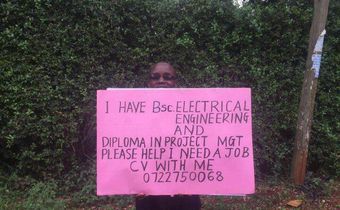 I HAVE BSC. ELECTRICAL
ENGINEERING
AND
DIPLOMA IN PROJECT MGT
PLEASE HELP I NEED A JOB
CV WITH ME
0722750068